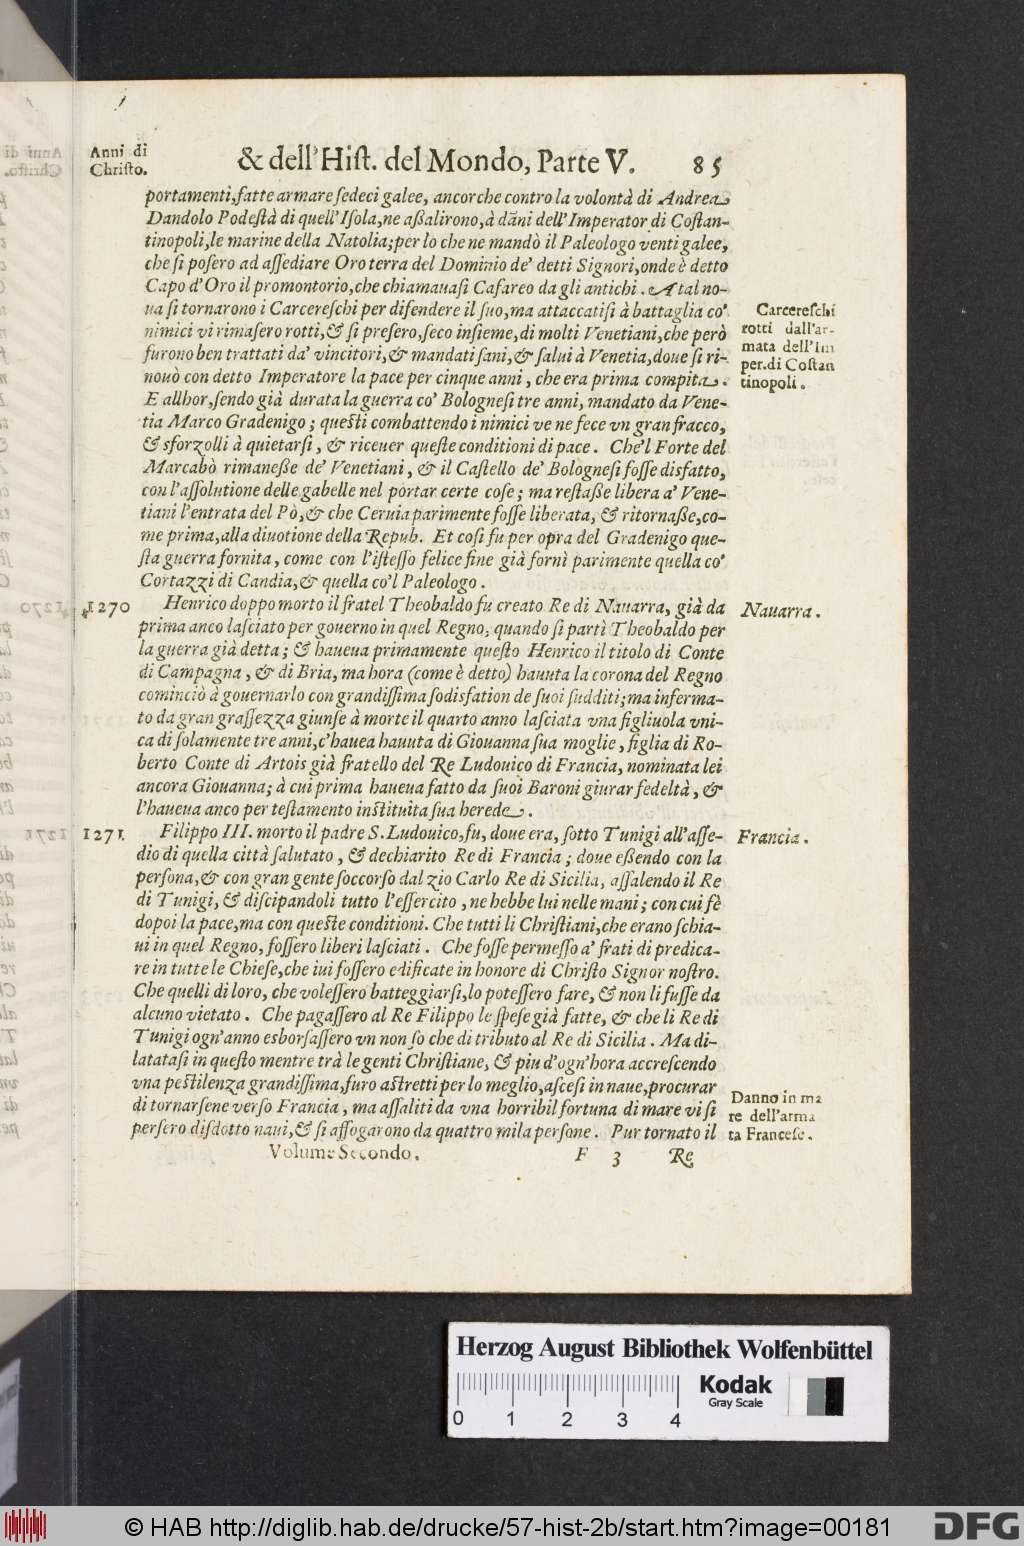 Anni di
Chriſto.
& dell'Hiſt. del Mondo, Parte V. 85
portamenti,fatte armare ſedeci galee, ancorche contro la volontà di Andrea
Dandolo Podeſtà di quell'Iſola,ne aßalirono,à dāni dell'Imperator di Coſtan-
tinopoli,le marine della Natolia;per lo che ne mandò il Paleologo venti galee,
che ſi poſero ad aſſediare Oro terra del Dominio de' detti Signori,onde è detto
Capo d'Oro il promontorio,che chiamauaſi Cafareo da gli antichi. A tal no-
ua ſi tornarono i Carcereſchi per difendere il ſuo,ma attaccatiſi à battaglia co'
nimici vi rimaſero rotti,& ſi preſero,ſeco inſieme,di molti Venetiani,che però
furono ben trattati da' vincitori,& mandati ſani,& ſalui à Venetia,doue ſi ri-
nouò con detto Imperatore la pace per cinque anni, che era prima compita.
E allhor,ſendo già durata la guerra co' Bologneſi tre anni, mandato da Vene-
tia Marco Gradenigo; queſti combattendo i nimici ve ne fece vn gran fracco,
& sforzolli à quietarſi, & riceuer queſte conditioni di pace. Che'l Forte del
Marcabò rimaneße de' Venetiani, & il Caſtello de' Bologneſi foſſe disfatto,
con l'aſſolutione delle gabelle nel portar certe coſe; ma reſtaße libera a' Vene-
tiani l'entrata del Pò,& che Ceruia parimente foſſe liberata, & ritornaße,co-
me prima,alla diuotione della Repub. Et coſi fu per opra del Gradenigo que-
ſta guerra fornita, come con l'iſteſſo felice fine già fornì parimente quella co'
Cortazzi di Candia,& quella co'l Paleologo.
Carcereſchi
rotti dall'ar-
mata dell'Im
per.di Coſtan
tinopoli.
1270 Henrico doppo morto il fratel Theobaldo fu creato Re di Nauarra, già da
prima anco laſciato per gouerno in quel Regno, quando ſi partì Theobaldo per
la guerra già detta; & haueua primamente queſto Henrico il titolo di Conte
di Campagna, & di Bria, ma hora (come è detto) hauuta la corona del Regno
cominciò à gouernarlo con grandiſſima ſodisfation de ſuoi ſudditi;ma inferma-
to da gran graſſezza giunſe à morte il quarto anno laſciata vna figliuola vni-
ca di ſolamente tre anni,c'hauea hauuta di Giouanna ſua moglie, figlia di Ro-
berto Conte di Artois già fratello del Re Ludouico di Francia, nominata lei
ancora Giouanna; à cui prima haueua fatto da ſuoi Baroni giurar fedeltà, &
l'haueua anco per teſtamento inſtituita ſua herede.
Nauarra.
1271 Filippo III. morto il padre S. Ludouico,fu, doue era, ſotto Tunigi all'aſſe-
dio di quella città ſalutato, & dechiarito Re di Francia; doue eßendo con la
perſona,& con gran gente ſoccorſo dal zio Carlo Re di Sicilia, aſſalendo il Re
di Tunigi, & diſcipandoli tutto l'eſſercito, ne hebbe lui nelle mani; con cui fè
dopoi la pace,ma con queſte conditioni. Che tutti li Chriſtiani,che erano ſchia-
ui in quel Regno, foſſero liberi laſciati. Che foſſe permeſſo a' frati di predica-
re in tutte le Chieſe,che iui foſſero edificate in honore di Chriſto Signor noſtro.
Che quelli di loro, che voleſſero batteggiarſi,lo poteſſero fare, & non li fuſſe da
alcuno vietato. Che pagaſſero al Re Filippo le ſpeſe già fatte, & che li Re di
Tunigi ogn'anno esborſaſſero vn non ſo che di tributo al Re di Sicilia. Ma di-
latataſi in queſto mentre trà le genti Chriſtiane, & piu d'ogn'hora accreſcendo
vna peſtilenza grandiſſima,furo aſtretti per lo meglio,aſceſi in naue,procurar
di tornarſene verſo Francia, ma aſſaliti da vna horribil fortuna di mare vi ſi
perſero diſdotto naui,& ſi affogarono da quattro mila perſone. Pur tornato il
Francia.
Danno in ma
re dell'arma
ta Franceſe.
Volume Secondo. F 3 Re
Herzog August Bibliothek Wolfenbüttel
Kodak
Gray Scale
0 1 2 3 4
© HAB http://diglib.hab.de/drucke/57-hist-2b/start.htm?image=00181
DFG